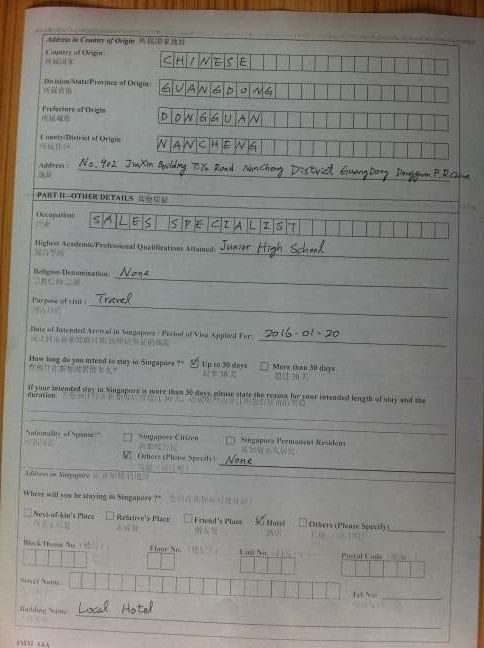 Address in Country of Origin 所属国家地址
Country of Origin: CHINESE
所属国家
Division/State/Province of Origin: GUANGDONG
所属省份
Prefecture of Origin DONGGUAN
County/District of Origin NANCHENG
Address: No. 902 JiaXin Building TiYu Road NanCheng District GuangDong Dongguan P.R.China
地址
PART II - OTHER DETAILS 其他信息
Occupation: SALES SPECIALIST
Highest Academic/Professional Qualifications Attained: Junior High School
Religion/Denomination: None
Purpose of visit: Travel
Date of Intended Arrival in Singapore / Period of Visa Applied For: 2016-01-20
How long do you intend to stay in Singapore?* ☑ Up to 30 days ☐ More than 30 days
If your intended stay in Singapore is more than 30 days, please state the reason for your intended length of stay and the
duration.
Nationality of Spouse:* ☐ Singapore Citizen ☐ Singapore Permanent Resident
☑ Others (Please Specify) None
Address in Singapore
Where will you be staying in Singapore?*
☐ Next-of-kin's Place ☐ Relative's Place ☐ Friend's Place ☑ Hotel ☐ Others (Please Specify)
Block/House No. Floor No. Unit No. Postal Code
Street Name: Tel No:
Building Name: Local Hotel
IMM 14A